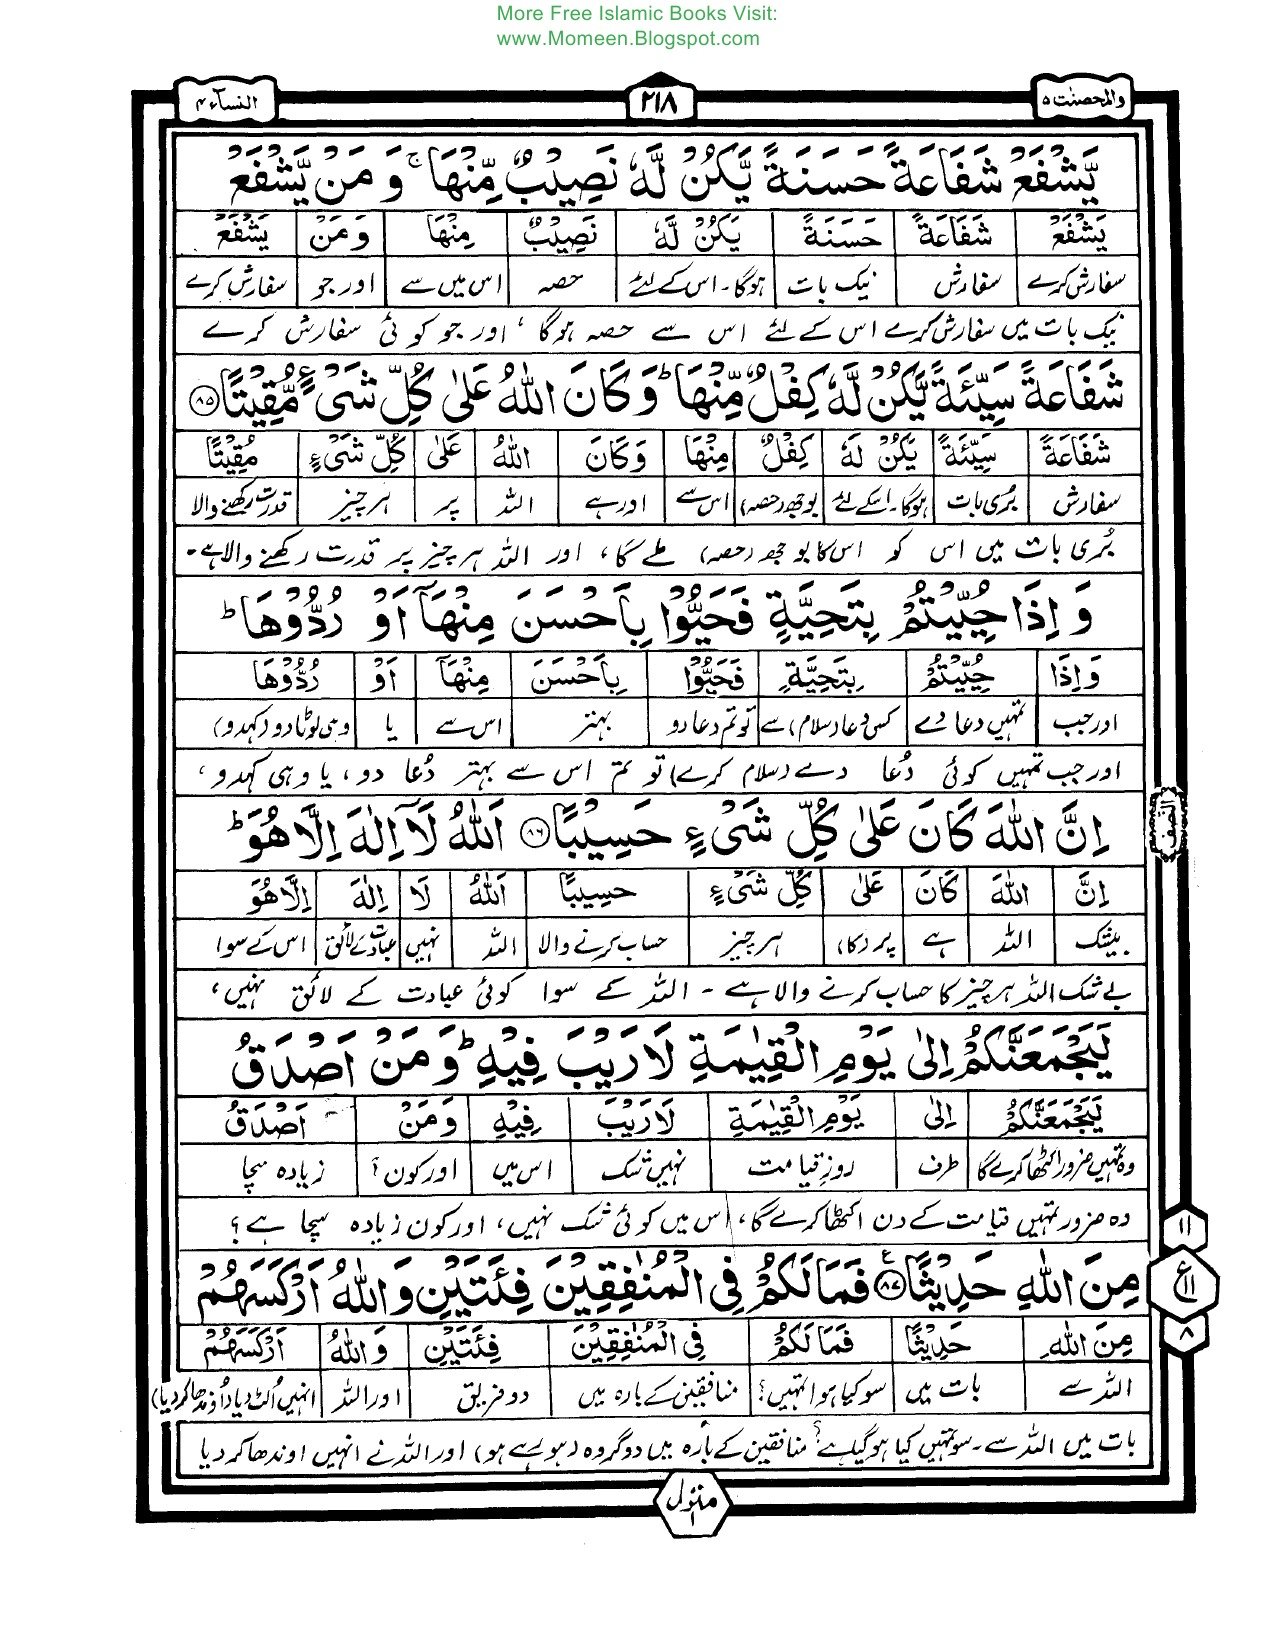 More Free Islamic Books Visit:
www.Momeen.Blogspot.com
والمحصنٰت ۵ ۲۱۸ النسآء ۴
يَّشْفَعْ شَفَاعَةً حَسَنَةً يَّكُنْ لَّهٗ نَصِيْبٌ مِّنْهَا ۚ وَ مَنْ يَّشْفَعْ
يَشْفَعْ شَفَاعَةً حَسَنَةً يَكُنْ لَهٗ نَصِيْبٌ مِنْهَا وَ مَنْ يَشْفَعْ
سفارش کرے سفارش نیک بات ہوگا۔ اس کے لئے حصہ اس میں سے اور جو سفارش کرے
نیک بات میں سفارش کرے اس کے لئے اس سے حصہ ہوگا ، اور جو کوئی سفارش کرے
شَفَاعَةً سَيِّئَةً يَّكُنْ لَّهٗ كِفْلٌ مِّنْهَا ؕ وَ كَانَ اللّٰهُ عَلٰى كُلِّ شَىْءٍ مُّقِيْتًا ۸۵
شَفَاعَةً سَيِّئَةً يَكُنْ لَهٗ كِفْلٌ مِنْهَا وَكَانَ اللّٰهُ عَلٰى كُلِّ شَىْءٍ مُقِيْتًا
سفارش بُری بات ہوگا۔ اسکے لئے بوجھ (حصہ) اس سے اور ہے اللہ پر ہر چیز قدرت رکھنے والا
بُری بات میں اس کو اس کا بوجھ (حصہ) ملے گا، اور اللہ ہر چیز پر قدرت رکھنے والا ہے۔
وَ اِذَا حُيِّيْتُمْ بِتَحِيَّةٍ فَحَيُّوْا بِاَحْسَنَ مِنْهَآ اَوْ رُدُّوْهَا ؕ
وَ اِذَا حُيِّيْتُمْ بِتَحِيَّةٍ فَحَيُّوْا بِاَحْسَنَ مِنْهَآ اَوْ رُدُّوْهَا
اور جب تمہیں دعا دے کسی دعا (سلام) سے تو تم دعا دو بہتر اس سے یا وہی لوٹا دو (کہدو)
اور جب تمہیں کوئی دُعا دے (سلام کرے) تو تم اس سے بہتر دُعا دو ، یا وہی کہدو ،
اِنَّ اللّٰهَ كَانَ عَلٰى كُلِّ شَىْءٍ حَسِيْبًا ۸۶ اَللّٰهُ لَآ اِلٰهَ اِلَّا هُوَ ؕ
النصف
اِنَّ اللّٰهَ كَانَ عَلٰى كُلِّ شَىْءٍ حَسِيْبًا اَللّٰهُ لَا اِلٰهَ اِلَّا هُوَ
بیشک اللہ ہے پر (کا) ہر چیز حساب کرنے والا اللہ نہیں عبادت کے لائق اس کے سوا
بے شک اللہ ہر چیز کا حساب کرنے والا ہے ۔ اللہ کے سوا کوئی عبادت کے لائق نہیں،
لَيَجْمَعَنَّكُمْ اِلٰى يَوْمِ الْقِيٰمَةِ لَا رَيْبَ فِيْهِ ؕ وَ مَنْ اَصْدَقُ
لَيَجْمَعَنَّكُمْ اِلٰى يَوْمِ الْقِيٰمَةِ لَارَيْبَ فِيْهِ وَ مَنْ اَصْدَقُ
وہ تمہیں ضرور اکٹھا کرے گا طرف روزِ قیامت نہیں شک اس میں اور کون ؟ زیادہ سچا
وہ ضرور تمہیں قیامت کے دن اکٹھا کرے گا، اس میں کوئی شک نہیں، اور کون زیادہ سچا ہے ؟
مِنَ اللّٰهِ حَدِيْثًا ۸۷ ع فَمَا لَكُمْ فِى الْمُنٰفِقِيْنَ فِئَتَيْنِ وَ اللّٰهُ اَرْكَسَهُمْ
۱۱
ع ۱۱
۸
مِنَ اللّٰهِ حَدِيْثًا فَمَا لَكُمْ فِى الْمُنٰفِقِيْنَ فِئَتَيْنِ وَ اللّٰهُ اَرْكَسَهُمْ
اللہ سے بات میں سو کیا ہوا تمہیں؟ منافقین کے بارہ میں دو فریق اور اللہ انہیں الٹ دیا (اوندھا کر دیا)
بات میں اللہ سے۔ سو تمہیں کیا ہو گیا ہے؟ منافقین کے بارہ میں دو گروہ (ہو رہے ہو) اور اللہ نے انہیں اوندھا کر دیا
منزل ۱